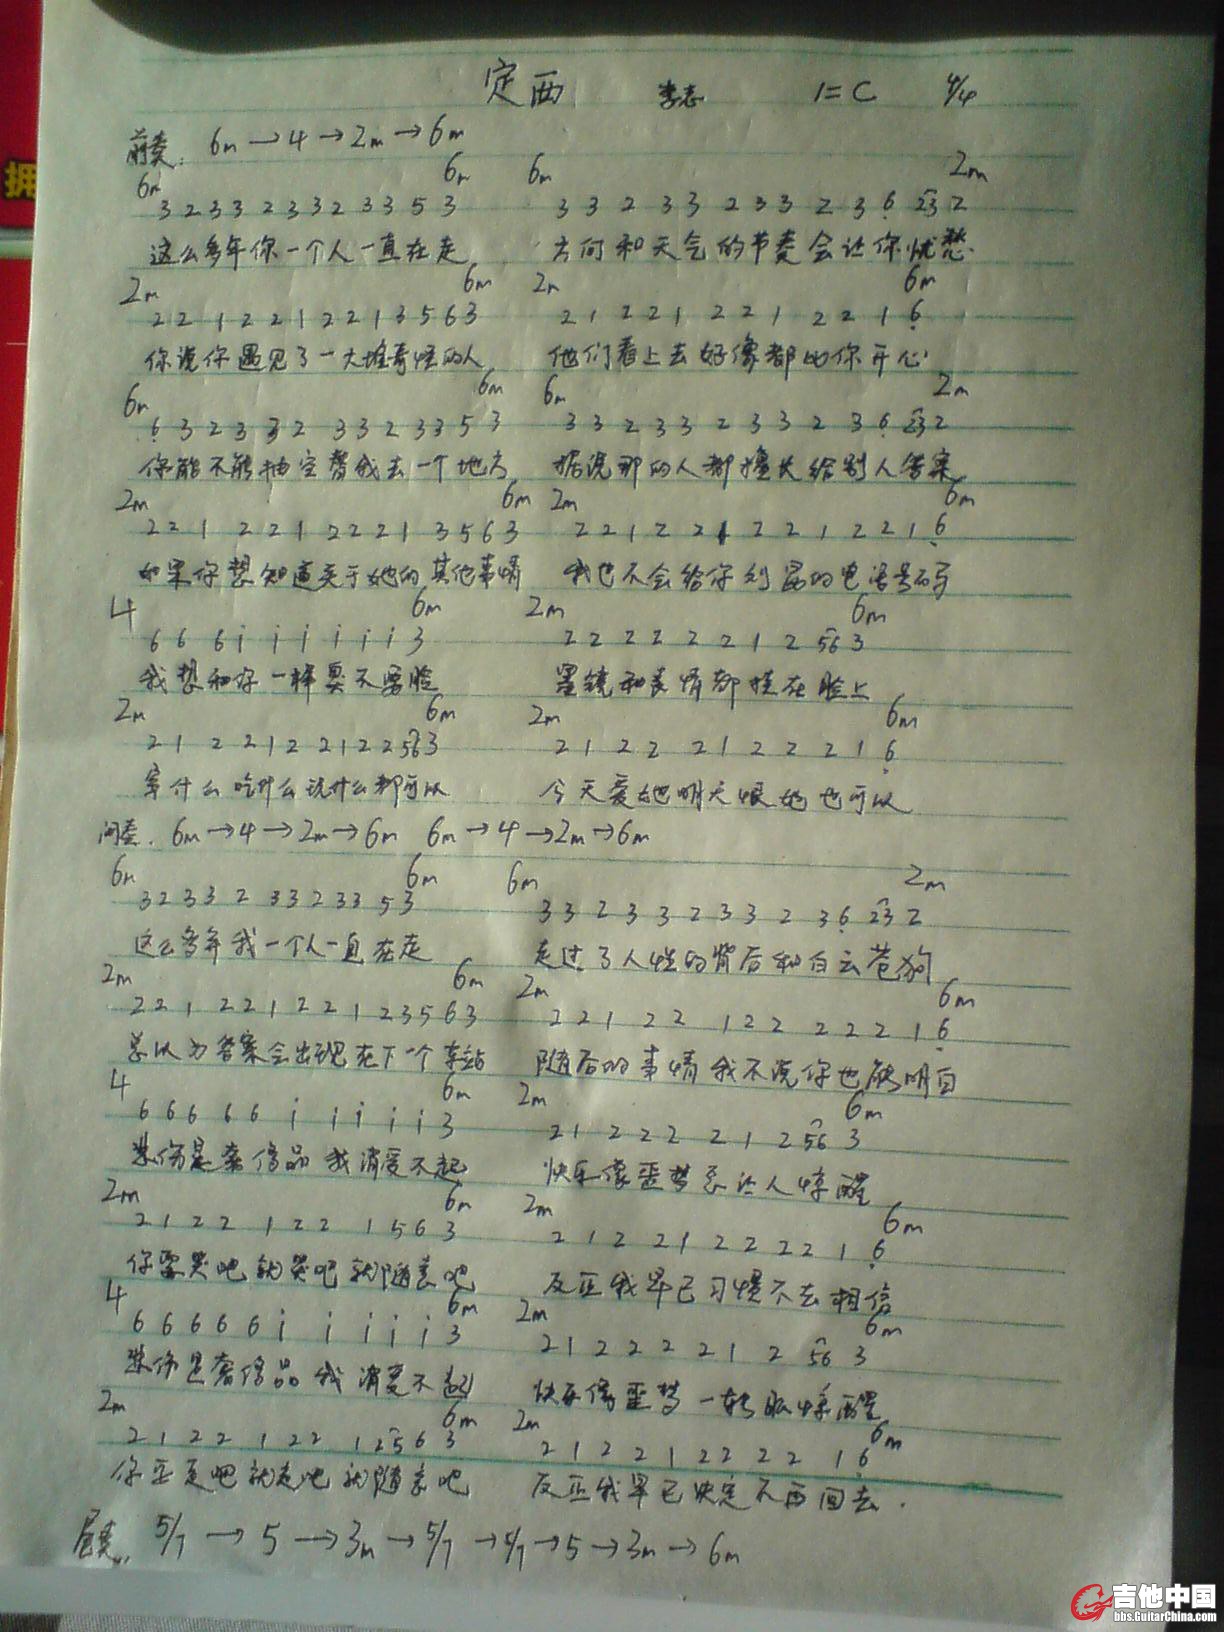 定西 李志 1=C 4/4
前奏: 6m→4→2m→6m
6m 6m 6m 2m
3 2 3 3 2 3 3 2 3 3 5 3 3 3 2 3 3 2 3 3 2 3 6 23 2
这么多年你一个人一直在走 方向和天气的节奏会让你忧愁.
2m 6m 2m 6m
2 2 1 2 2 1 2 2 1 3 5 6 3 2 1 2 2 1 2 2 1 2 2 1 6
你说你遇见了一大堆奇怪的人 他们看上去好像都比你开心
6m 6m 6m 2m
6 3 2 3 3 2 3 3 2 3 3 5 3 3 3 2 3 3 2 3 3 2 3 6 23 2
你能不能抽空替我去一个地方 据说那的人都擅长给别人答案
2m 6m 2m 6m
2 2 1 2 2 1 2 2 2 1 3 5 6 3 2 2 1 2 2 1 2 2 1 2 2 1 6
如果你想知道关于她的其他事情 我也不会给你刘昆的电话号码
4 6m 2m 6m
6 6 6 i i i i i i 3 2 2 2 2 2 2 1 2 56 3
我想和你一样臭不要脸 墨镜和表情都挂在脸上
2m 6m 2m 6m
2 1 2 2 1 2 2 1 2 2 56 3 2 1 2 2 2 1 2 2 2 1 6
穿什么吃什么说什么都可以 今天爱她明天恨她也可以
间奏. 6m→4→2m→6m 6m→4→2m→6m
6m 6m 6m 2m
3 2 3 3 2 3 3 2 3 3 5 3 3 3 2 3 3 2 3 3 2 3 6 23 2
这么多年我一个人一直在走 走过了人性的背后和白云苍狗
2m 6m 2m 6m
2 2 1 2 2 1 2 2 1 2 3 5 6 3 2 2 1 2 2 1 2 2 2 2 2 1 6
总以为答案会出现在下一个车站 随后的事情我不说你也能明白
4 6m 2m 6m
6 6 6 6 6 i i i i i 3 2 1 2 2 2 2 1 2 56 3
悲伤是奢侈品我消受不起 快乐像噩梦总让人惊醒
2m 6m 2m 6m
2 1 2 2 1 2 2 1 5 6 3 2 1 2 2 1 2 2 2 2 1 6
你要哭吧就哭吧就随意吧 反正我早已习惯不去相信
4 6m 2m 6m
6 6 6 6 6 i i i i i 3 2 1 2 2 2 2 1 2 56 3
悲伤是奢侈品我消受不起 快乐像噩梦一转眼惊醒
2m 6m 2m 6m
2 1 2 2 1 2 2 1 2 5 6 3 2 1 2 2 1 2 2 2 2 1 6
你要走吧就走吧就随意吧 反正我早已决定不再回去.
尾奏. 5/7→5→3m→5/7→5/7→5→3m→6m
吉他中国
bbs.GuitarChina.com